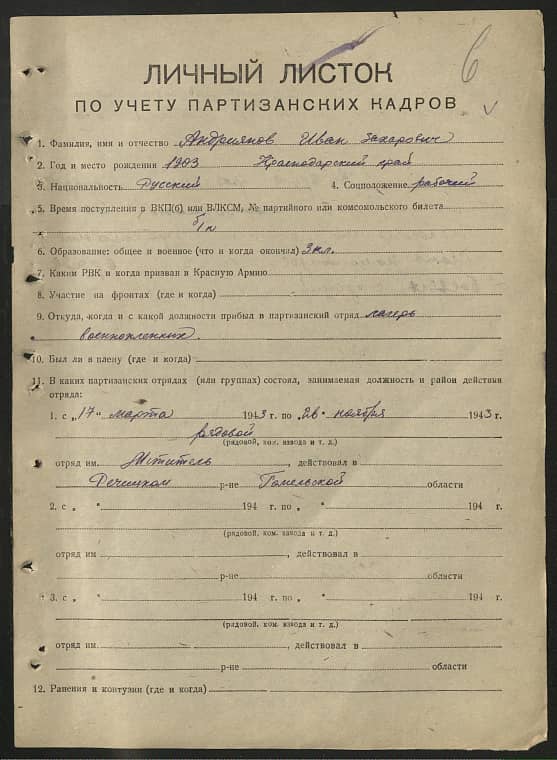 6
ЛИЧНЫЙ ЛИСТОК
ПО УЧЕТУ ПАРТИЗАНСКИХ КАДРОВ
1. Фамилия, имя и отчество Андриянов Иван Захарович
2. Год и место рождения 1903 Краснодарский край
3. Национальность Русский 4. Соцположение рабочий
5. Время поступления в ВКП(б) или ВЛКСМ, № партийного или комсомольского билета
б/п
6. Образование: общее и военное (что и когда окончил) 3 кл.
7. Каким РВК и когда призван в Красную Армию
8. Участие на фронтах (где и когда)
9. Откуда, когда и с какой должности прибыл в партизанский отряд лагерь
военнопленных.
10. Был ли в плену (где и когда)
11. В каких партизанских отрядах (или группах) состоял, занимаемая должность и район действия
отряда:
1. с „17“ марта 1943 г. по „26“ ноября 1943 г.
рядовой
(рядовой, ком. взвода и т. д.)
отряд им. Мститель, действовал в
Речицком р-не Гомельской области
2. с „ “ 194 г. по „ “ 194 г.
(рядовой, ком. взвода и т. д.)
отряд им , действовал в
р-не области
3. с „ “ 194 г. по „ “ 194 г.
(рядовой, ком. взвода и т. д.)
отряд им. , действовал в
р-не области
12. Ранения и контузии (где и когда)